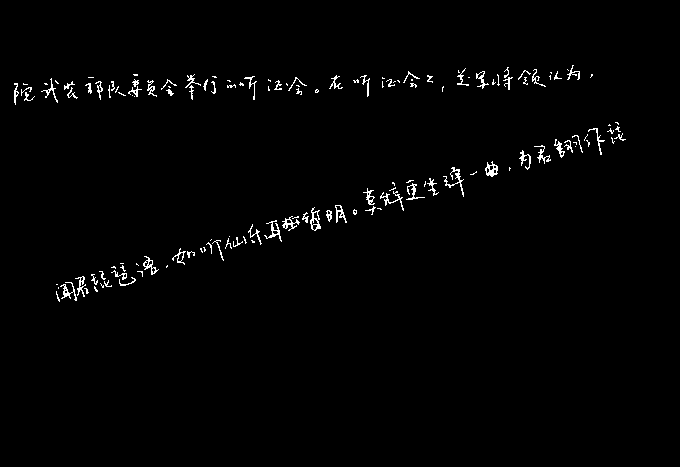 院武装部队委员会举行的听证会。在听证会上,美军将领认为,
闻君琵琶语,如听仙乐耳暂明。莫辞更坐弹一曲,为君翻作琵